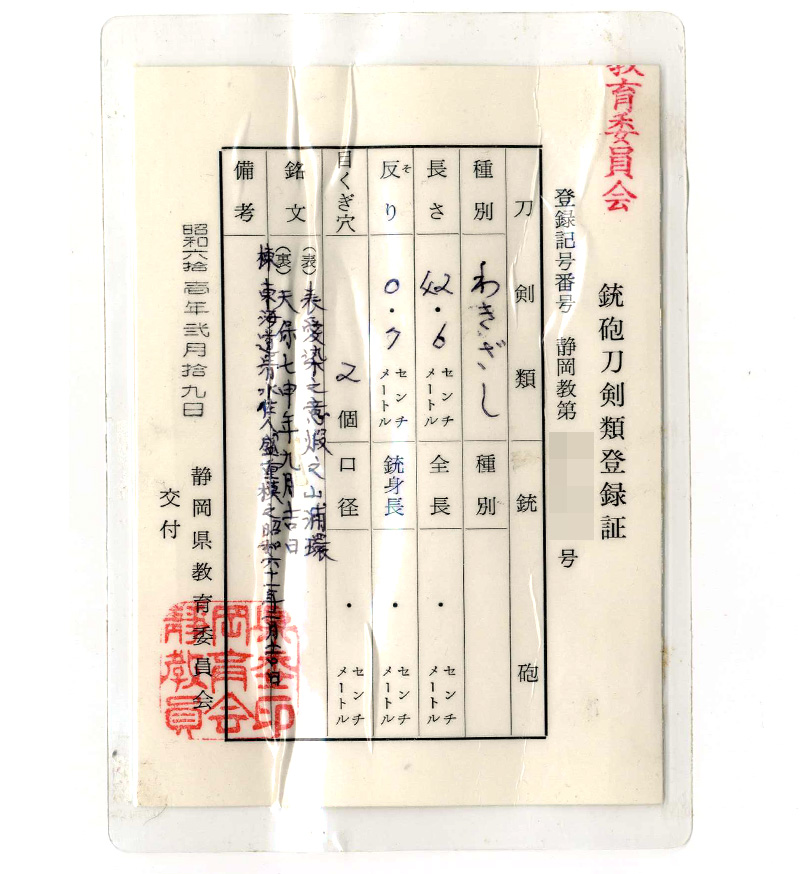 教育委員会
銃砲刀剣類登録証
登録記号番号 静岡教第 号
刀剣類 銃砲
種別 わきざし 種別
長さ 42.6 センチメートル 全長 ・ センチメートル
反り 0.7 センチメートル 銃身長 ・ センチメートル
そ
目くぎ穴 2個 口径 ・ センチメートル
銘文 (表) 表愛染之意煆之山浦環
(裏) 天保七申年九月吉日
棟 東海道清水住人盛重模之昭和六十一年二月吉日
備考
昭和六拾壱年弐月拾九日
静岡県教育委員会
交付